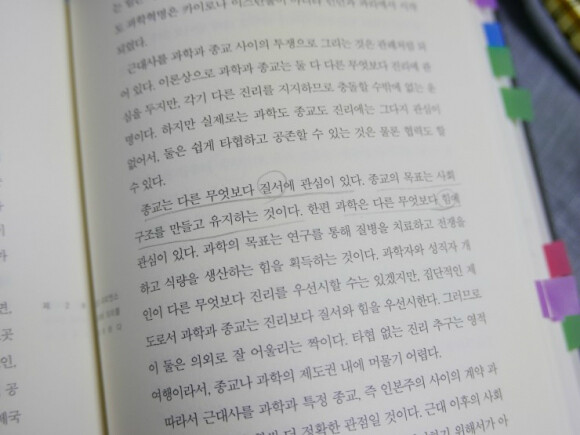 도 과학혁명은 카이로나 이스탄불이 아니라 런던과 파리에서 시작
되었다.
근대사를 과학과 종교 사이의 투쟁으로 그리는 것은 관례처럼 되
어 있다. 이론상으로 과학과 종교는 둘 다 다른 무엇보다 진리에 관
심을 두지만, 각기 다른 진리를 지지하므로 충돌할 수밖에 없는 운
명이다. 하지만 실제로는 과학도 종교도 진리에는 그다지 관심이
없어서, 둘은 쉽게 타협하고 공존할 수 있는 것은 물론 협력도 할
수 있다.
종교는 다른 무엇보다 질서에 관심이 있다. 종교의 목표는 사회
구조를 만들고 유지하는 것이다. 한편 과학은 다른 무엇보다 힘에
관심이 있다. 과학의 목표는 연구를 통해 질병을 치료하고 전쟁을
하고 식량을 생산하는 힘을 획득하는 것이다. 과학자와 성직자 개
인이 다른 무엇보다 진리를 우선시할 수는 있겠지만, 집단적인 제
도로서 과학과 종교는 진리보다 질서와 힘을 우선시한다. 그러므로
이 둘은 의외로 잘 어울리는 짝이다. 타협 없는 진리 추구는 영적
여행이라서, 종교나 과학의 제도권 내에 머물기 어렵다.
따라서 근대사를 과학과 특정 종교, 즉 인본주의 사이의 계약 과
더 정확한 관점일 것이다. 근대 이후의 사회
위해서가 아
면,
곳
인,
공
제국